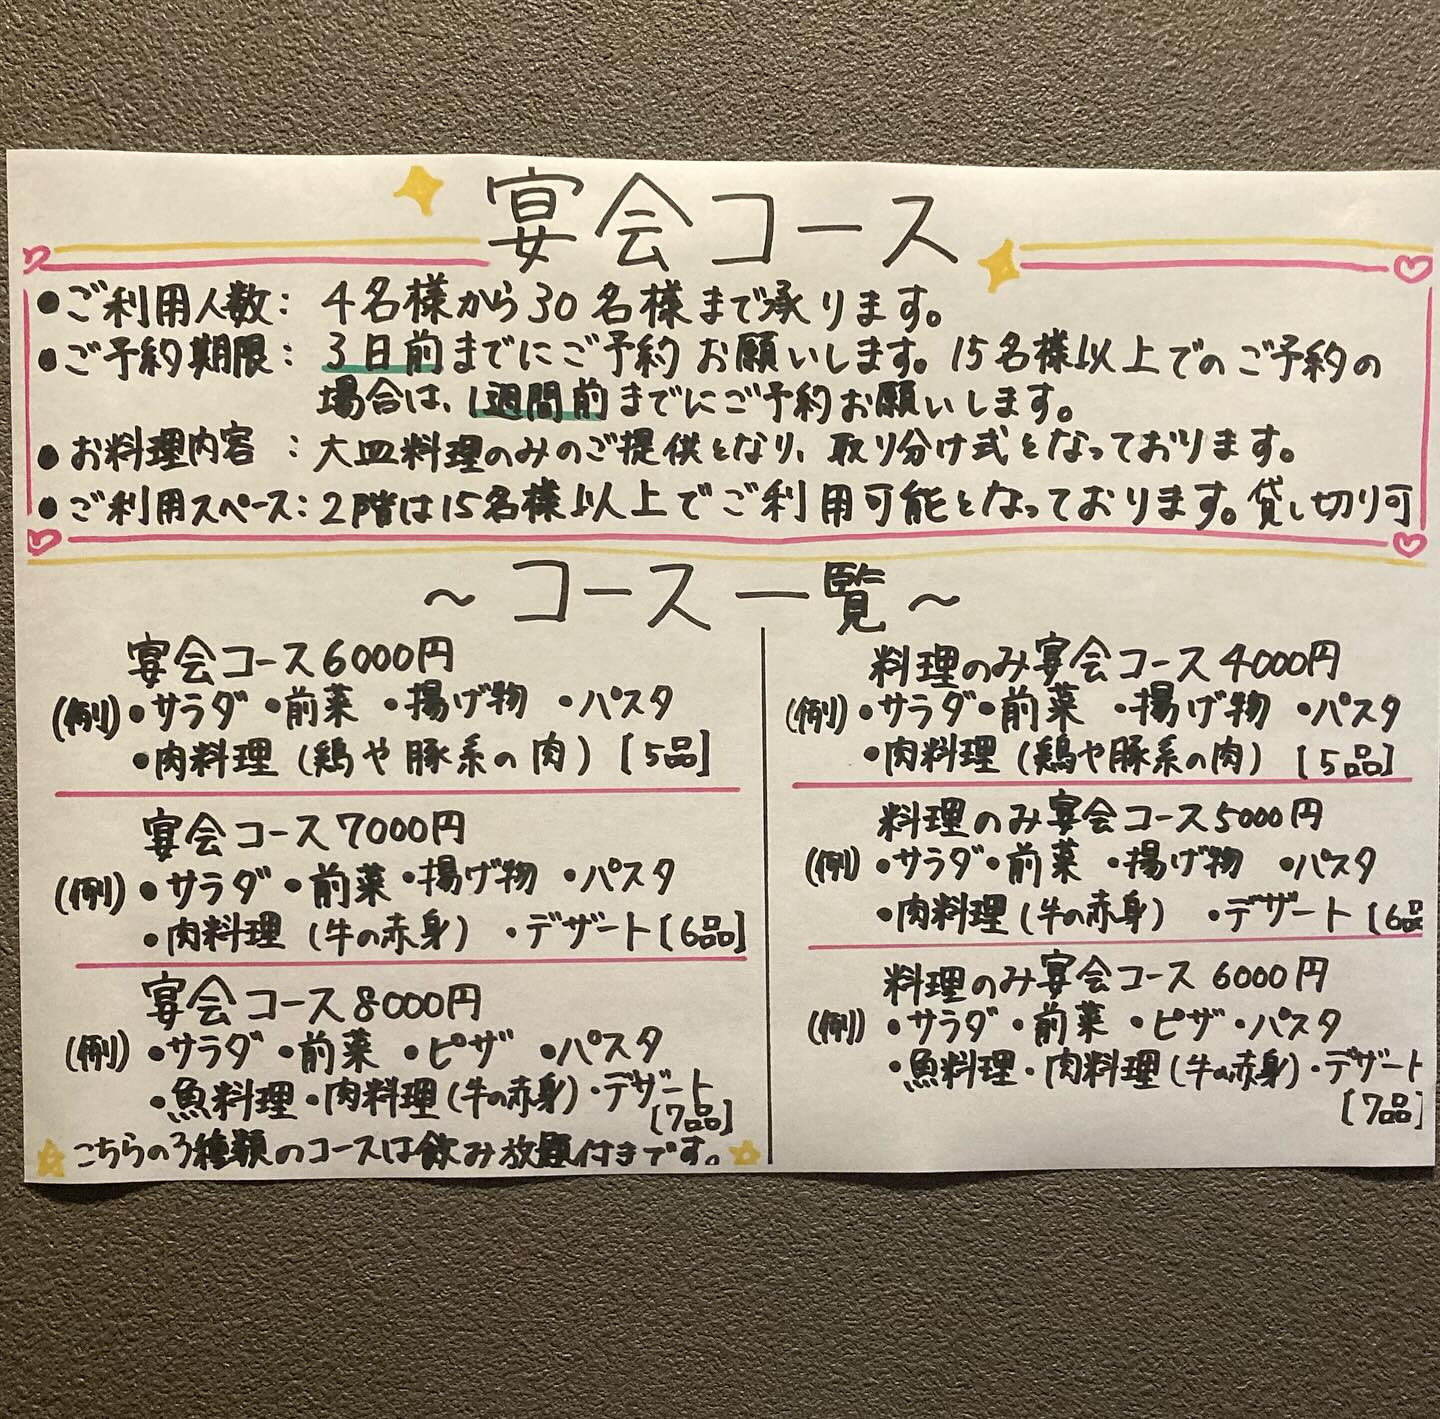 宴会コース
●ご利用人数：4名様から30名様まで承ります。
●ご予約期限：3日前までにご予約お願いします。15名様以上でのご予約の
場合は、1週間前までにご予約お願いします。
●お料理内容：大皿料理のみのご提供となり、取り分け式となっております。
●ご利用スペース：2階は15名様以上でご利用可能となっております。貸し切り可
～コース一覧～
宴会コース6000円
(例)•サラダ•前菜•揚げ物•パスタ
•肉料理(鶏や豚系の肉)[5品]
宴会コース7000円
(例)•サラダ•前菜•揚げ物•パスタ
•肉料理(牛の赤身)•デザート[6品]
宴会コース8000円
(例)•サラダ•前菜•ピザ•パスタ
•魚料理•肉料理(牛の赤身)•デザート
[7品]
こちらの3種類のコースは飲み放題付きです。
料理のみ宴会コース4000円
(例)•サラダ•前菜•揚げ物•パスタ
•肉料理(鶏や豚系の肉)[5品]
料理のみ宴会コース5000円
(例)•サラダ•前菜•揚げ物•パスタ
•肉料理(牛の赤身)•デザート[6品
料理のみ宴会コース6000円
(例)•サラダ•前菜•ピザ•パスタ
•魚料理•肉料理(牛の赤身)•デザート
[7品]